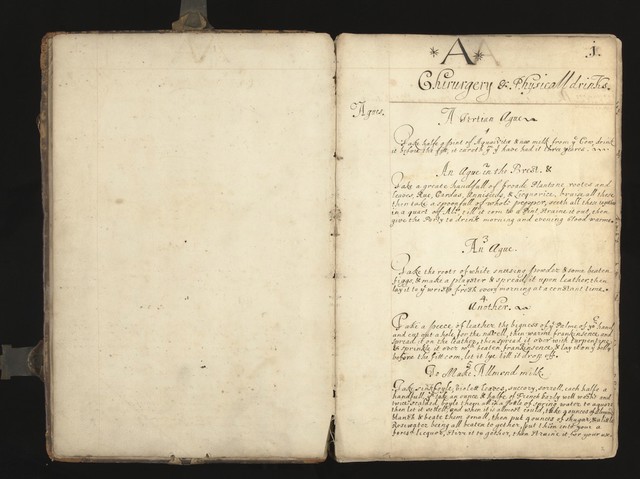 * A *
1.
Chirurgery & Physicall drinks.
Agues.
A Tertian Ague
1
Take half a point of Aquavita & new milk from ye Cow, drink
it before the fitt, it cureth if ye have had it three yeares.
2
An Ague in the Brest. &
Take a great handfull of Plantane rootes and
leaves, Rue, Cardus, Anniseeds, & Licquorice, bruise all these
then take a spoonfull of whole pepper, seeth all then together
in a quart of Ale, till it com to a Pint, straine it out, then
give the Party to drink morning and evening blood warme.
3
An Ague.
Take the roots of white sneesing powder & some beaten
figgs, & made a playster & spread it upon leather, then
lay it to ye wrists fresh every morning at a constant time.
4
Another.
Take a peece of leather the bigness of ye Palme of ye hand
and cut out a hole for the navell, then warme frankinsence, and
spread it on the leather, then spread it over with turpentine
& sprinkle it over with beaten frankinsence, & lay it on ye belly
before the fitt com, let it lye till it drop off.
5
To Make Allmond milk
Take sinkfoyle, violett leaves, succory, sorrell, each halfe a
handfull, take an ounce & halfe of French barly well washt and
twice scalded, boyle them all in a pottle of spring water to a quart
then let it settell, and when it is almost could, take 4 ounces of Almonds
blanch & beate them small, then put 4 ounces of shugar, & a little
Rosewater being all beaten together, put them into your
licquor, stirr it together, then straine it for your use.